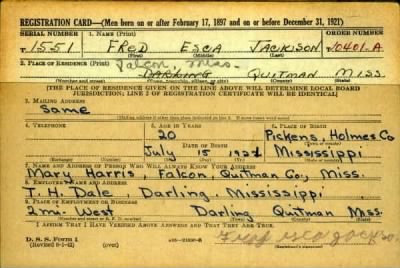 REGISTRATION CARD—(Men born on or after February 17, 1897 and on or before December 31, 1921)
SERIAL NUMBER 1. NAME (Print) ORDER NUMBER
T 1551 FRED ESCA JACKISON 10401-A
2. PLACE OF RESIDENCE (Print) Falcon Miss.
DARLING QUITMAN MISS.
(Number and street) (Town, township, village, or city) (County) (State)
[THE PLACE OF RESIDENCE GIVEN ON THE LINE ABOVE WILL DETERMINE LOCAL BOARD
JURISDICTION; LINE 2 OF REGISTRATION CERTIFICATE WILL BE IDENTICAL]
3. MAILING ADDRESS
Same
[Mailing address if other than place indicated on line 2. If same insert word same]
4. TELEPHONE 5. AGE IN YEARS 6. PLACE OF BIRTH
20 Pickens, Holmes Co
DATE OF BIRTH
July 15 Mississippi
(Exchange) (Number) (Mo.) (Day) (Yr.) (State or country)
7. NAME AND ADDRESS OF PERSON WHO WILL ALWAYS KNOW YOUR ADDRESS
Mary Harris, Falcon, Quitman Co., Miss.
8. EMPLOYER'S NAME AND ADDRESS
T. H. Dale Darling Mississippi
9. PLACE OF EMPLOYMENT OR BUSINESS
2 mi. West Darling Quitman Miss.
(Number and street or R. F. D. number) (Town) (County) (State)
I AFFIRM THAT I HAVE VERIFIED ABOVE ANSWERS AND THAT THEY ARE TRUE.
D. S. S. FORM 1
(Revised 6-9-41) (over)